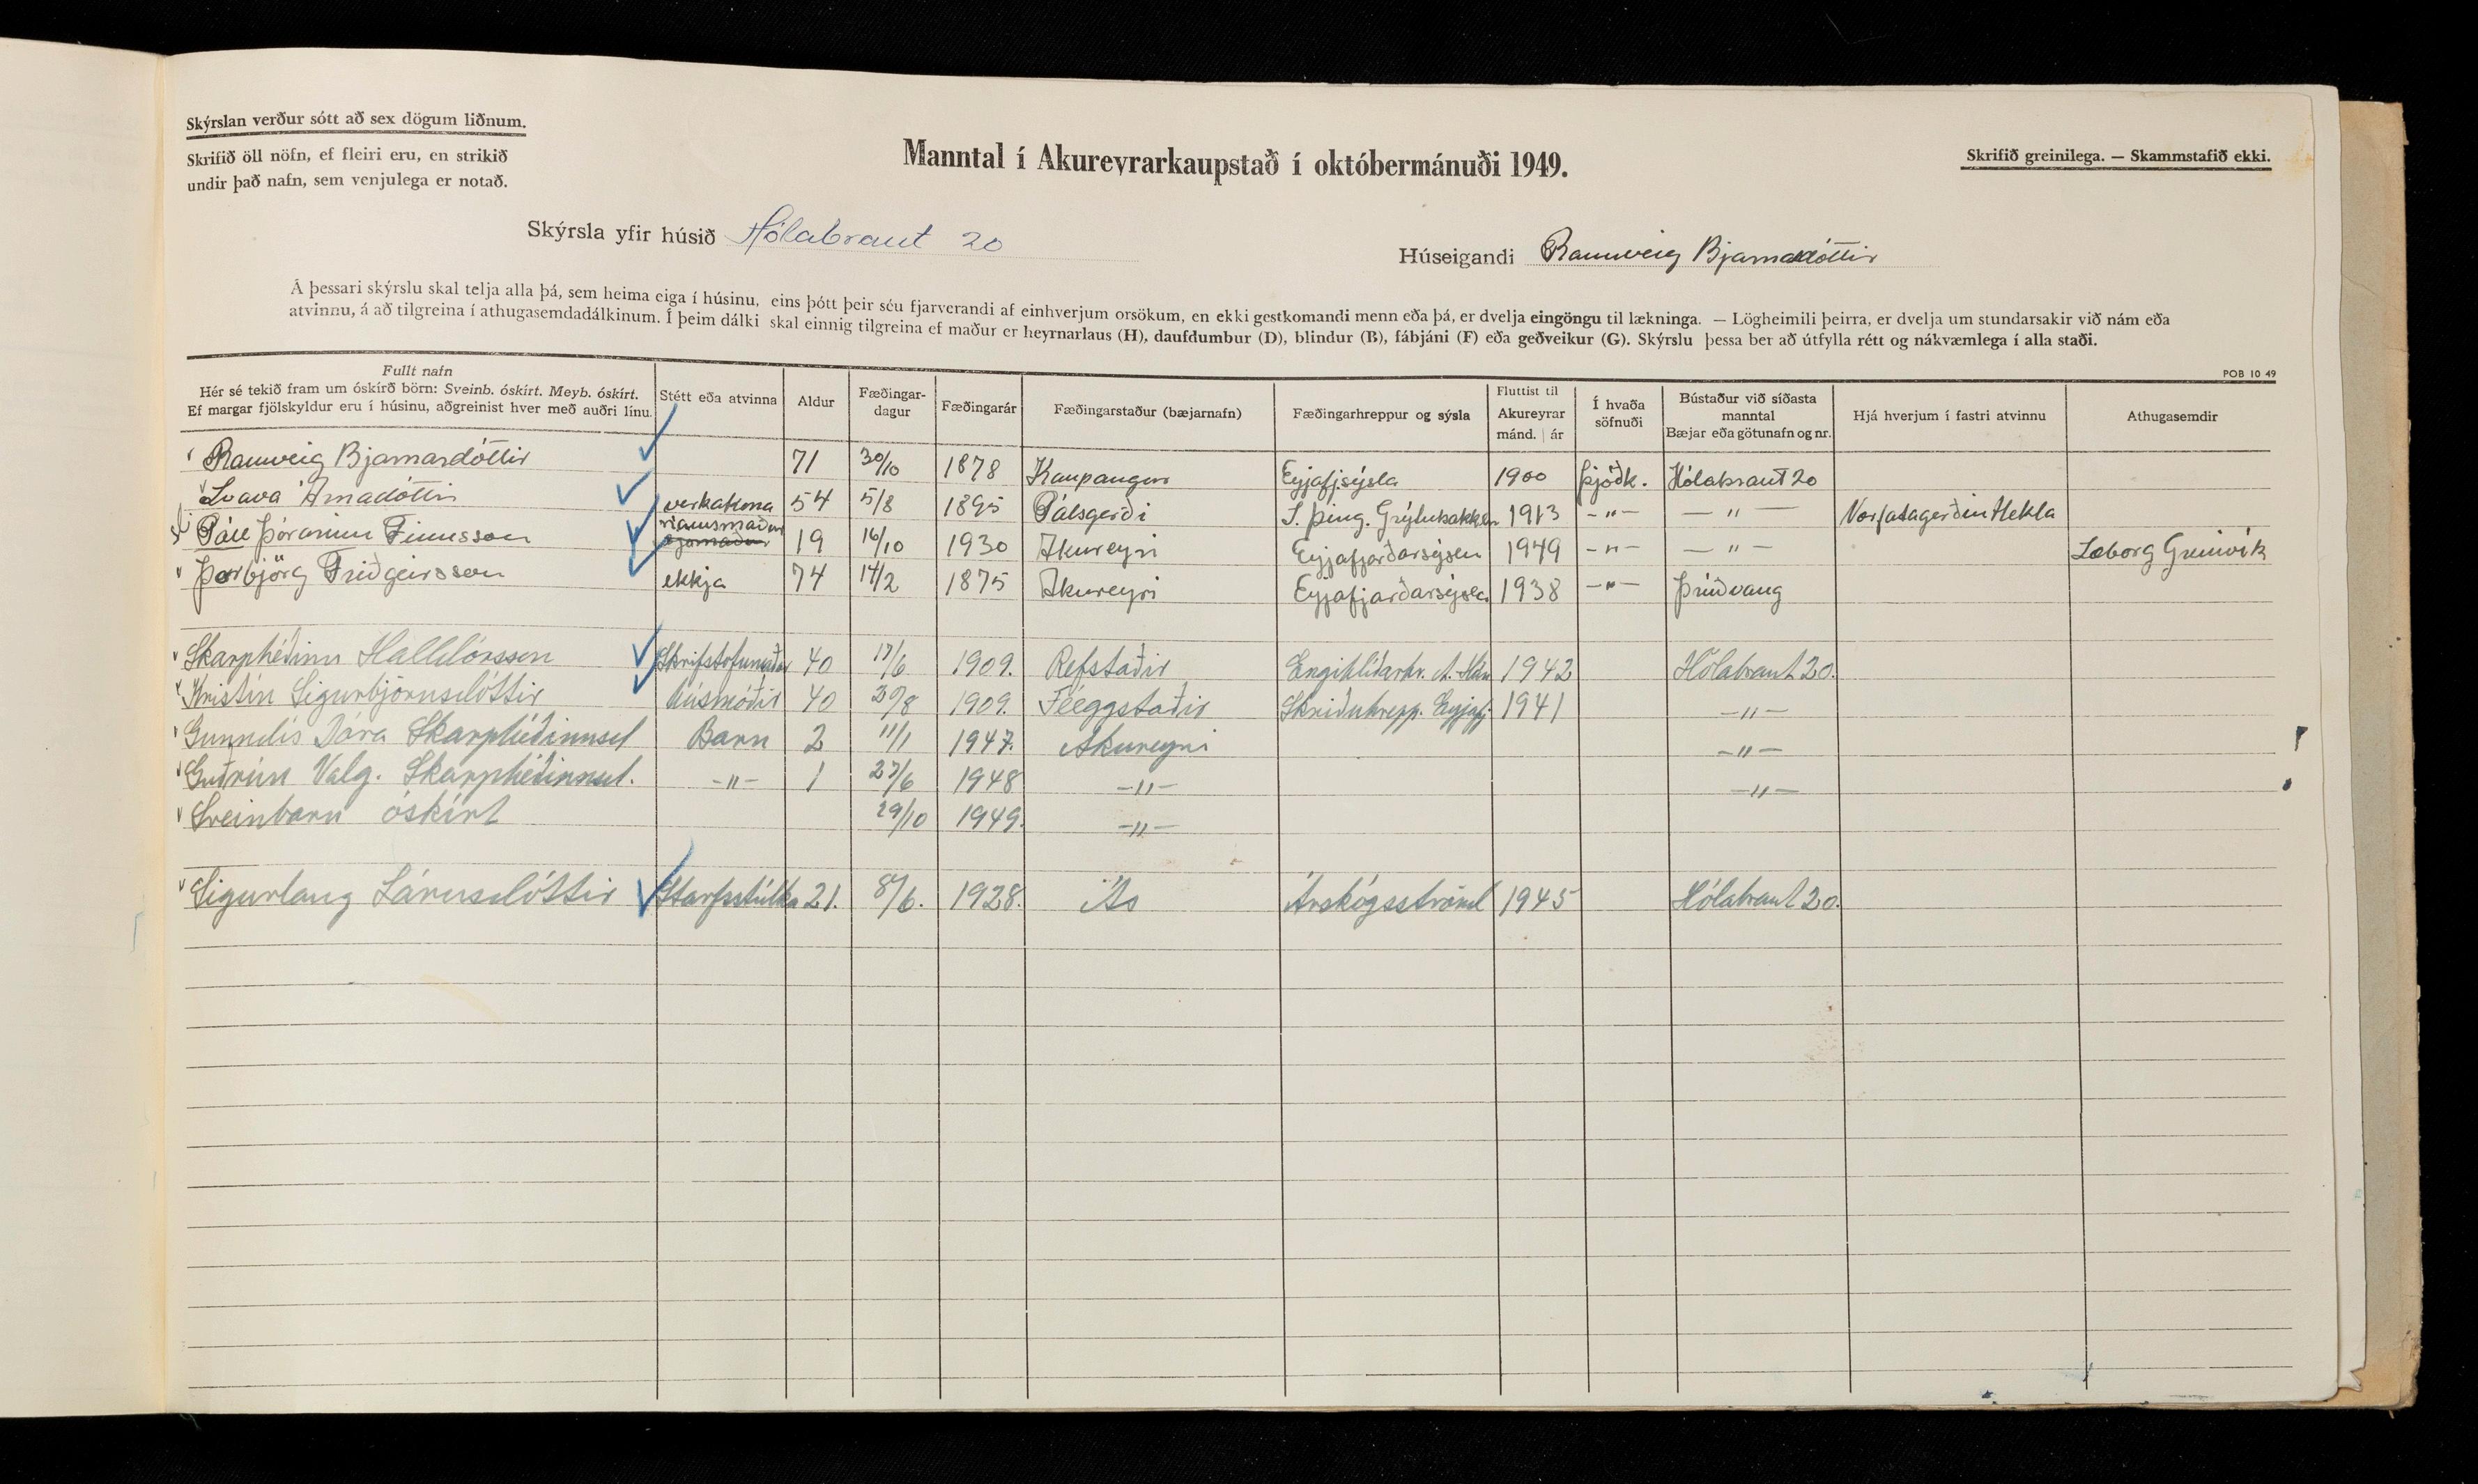 Skýrslan verður sótt að sex dögum liðnum.
Skrifið öll nöfn, ef fleiri eru, en strikið
undir það nafn, sem venjulega er notað.
Manntal í Akureyrarkaupstað í októbermánuði 1949.
Skrifið greinilega. — Skammstafið ekki.
Skýrsla yfir húsið Hólabraut 20
Húseigandi Rannveig Bjarnadóttir
Á þessari skýrslu skal telja alla þá, sem heima eiga í húsinu, eins þótt þeir séu fjarverandi af einhverjum orsökum, en ekki gestkomandi menn eða þá, er dvelja eingöngu til lækninga. — Lögheimili þeirra, er dvelja um stundarsakir við nám eða
atvinnu, á að tilgreina í athugasemdadálkinum. Í þeim dálki skal einnig tilgreina ef maður er heyrnarlaus (H), daufdumbur (D), blindur (B), fábjáni (F) eða geðveikur (G). Skýrslu þessa ber að útfylla rétt og nákvæmlega í alla staði.
POB 10 49
Fullt nafn
Hér sé tekið fram um óskírð börn: Sveinb. óskírt. Meyb. óskírt.
Ef margar fjölskyldur eru í húsinu, aðgreinist hver með auðri línu.
Stétt eða atvinna
Aldur
Fæðingar-
dagur
Fæðingarár
Fæðingarstaður (bæjarnafn)
Fæðingarhreppur og sýsla
Fluttist til
Akureyrar
mánd. | ár
Í hvaða
söfnuði
Bústaður við síðasta
manntal
Bæjar eða götunafn og nr.
Hjá hverjum í fastri atvinnu
Athugasemdir
Rannveig Bjarnardóttir 71 30/10 1878 Kaupangur Eyjafjsýsla 1900 Þjóðk. Hólabraut 20
Svava Árnadóttir verkakona 54 5/8 1895 Pálsgerði S. Þing. Grýtubakka 1913 -"- -"- Verksmiðjan Hekla
Páll Þórarinn Finnsson 19 16/10 1930 Akureyri Eyjafjarðarsýslu 1949 -"- -"- Laborg Grenivík
Þorbjörg Friðgeirsson ekkja 74 14/2 1875 Akureyri Eyjafjarðarsýslu 1938 -"- Þrúðvang
Skarphéðinn Halldórsson Skrifstofumaður 40 17/6 1909. Refstaðir Engihlíðarhr. A. Hún 1942 Hólabraut 20.
Kristín Sigurbjörnsdóttir húsmóðir 40 1909. Féeggstaðir Skriðuhrepp. Eyjafj. 1941 -"-
Gunndís Dóra Skarphéðinnsd Barn 2 11/1 1947. Akureyri -"-
Guðrún Valg. Skarphéðinnsd. -"- 1 27/6 1948 -"- -"-
Sveinbarn óskírt 29/10 1949. -"-
Sigurlaug Lárusdóttir Starfsstúlka 21. 8/6. 1928. Ás Árskógsströnd 1945 Hólabraut 20.